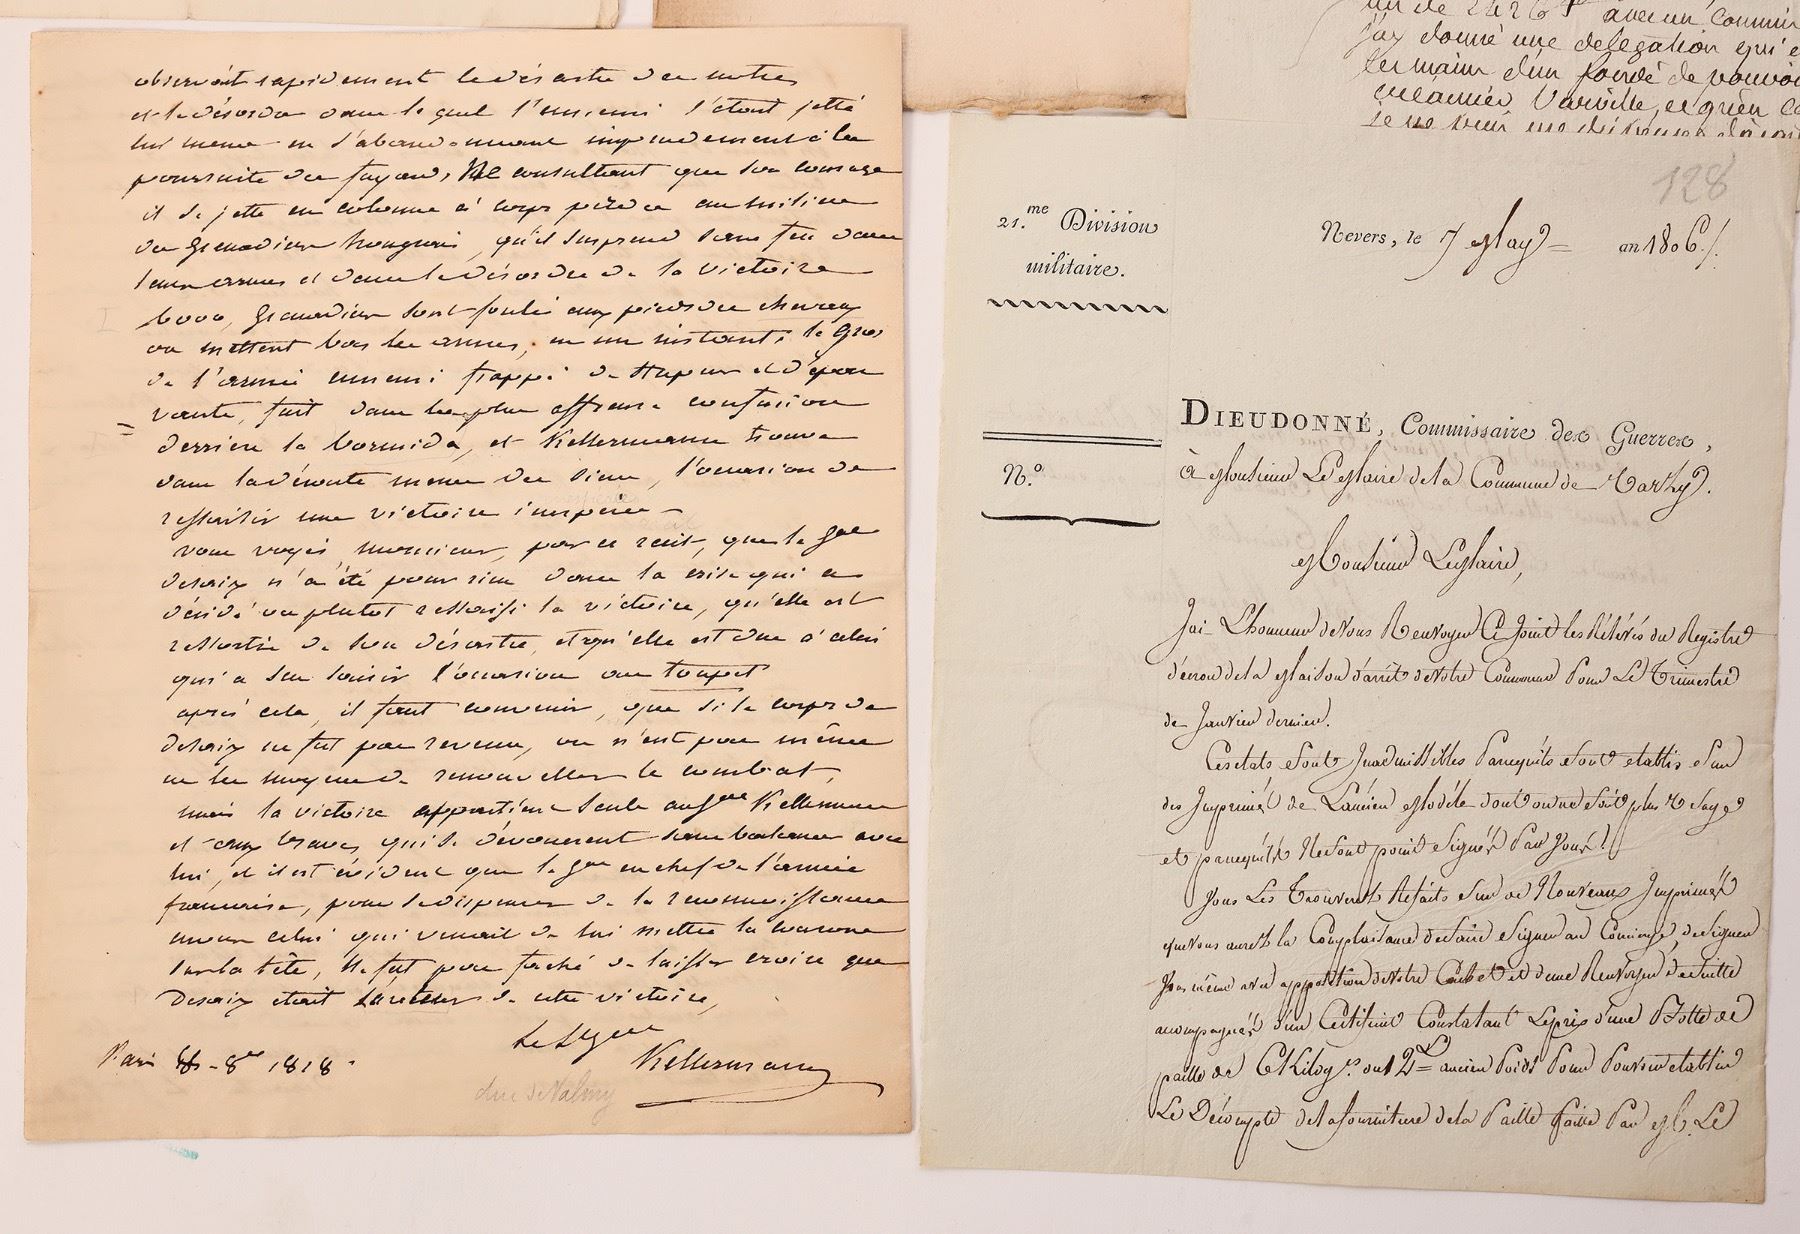 observoit rapidement le désastre des notres
et le désordre dans le quel l'ennemi s'étoit jetté
lui meme en s'abandonnant imprudement à la
poursuite des fuyards, Ne consultant que son courage
il se jette en colonne à corps perdu au milieu
des Grenadiers hongrois, qu'il surprend sans feu dans
leurs armes et dans le désordre de la victoire
6000, Grenadiers sont foulés aux pieds des chevaux
ou mettent bas les armes, en un instant, le gros
de l'armée ennemi frappé de stupeur et d'épou
vante, fuit dans la plus affreuse confusion
derriere la bormida, et Kellermann trouve
dans la déroute meme des siens, l'occasion de
ressaisir une victoire inesperée
vous voyés, monsieur, par ce récit, que le Gal
desaix n'a été pour rien dans la crise qui a
décidé ou plutot ressaisi la victoire, qu'elle est
ressortie de son désastre, et qu'elle est due à celui
qui a su saisir l'occasion au toupet
après cela, il faut convenir, que si le corps de
desaix ne fut pas revenu, on n'eut pas même
eu les moyens de renouveller le combat,
mais la victoire appartient seule au Gal Kellermann
et aux braves qui se dévouerent sans balancer avec
lui, et il est évident que le Gal en chef de l'armée
francaise, pour se dispenser de la reconnoissance
envers celui qui venait de lui mettre la couronne
sur la tête, Ne fut pas faché de laisser croire que
Desaix étoit l'auteur de cette victoire,
Le Lt Gal
Kellermann
Paris 8bre 1818.
duc de Valmy
un de 2426 avec un commis
j'ay donné une delegation qui
les mains d'un fondé de pouvoir
128
21.me Division
militaire.
Nevers, le 7 May an 1806.
DIEUDONNÉ, Commissaire des Guerres,
N.°
à Monsieur Le Maire de la Commune de Varzy.
Monsieur Le Maire,
J'ai L'honneur de vous Renvoyer Ci Joint les Rélévés du Registre
d'écrou de la Maison d'arrêt de votre Commune Pour Le Trimestre
de Janvier dernier.
Ces etats sont Inadmissibles Parcequ'ils sont etablis sur
des Imprimés de L'ancien Modéle dont on ne fait plus Usage
et parcequ'ils Ne sont point signés Par Vous.
Vous Les Trouverez Refaits sur de Nouveaux Imprimés
que vous aurez la Complaisance de faire signer au Concierge, de signer
Vous même avec apposition de votre Cachet et de me Renvoyer de suite
accompagnés d'un Certificat Constatant Le prix d'une Botte de
paille de 6 Kilog.s ou 12 ll ancien Poids Pour Pouvoir etablir
Le Décompte de la fourniture de la Paille faite Par M. Le